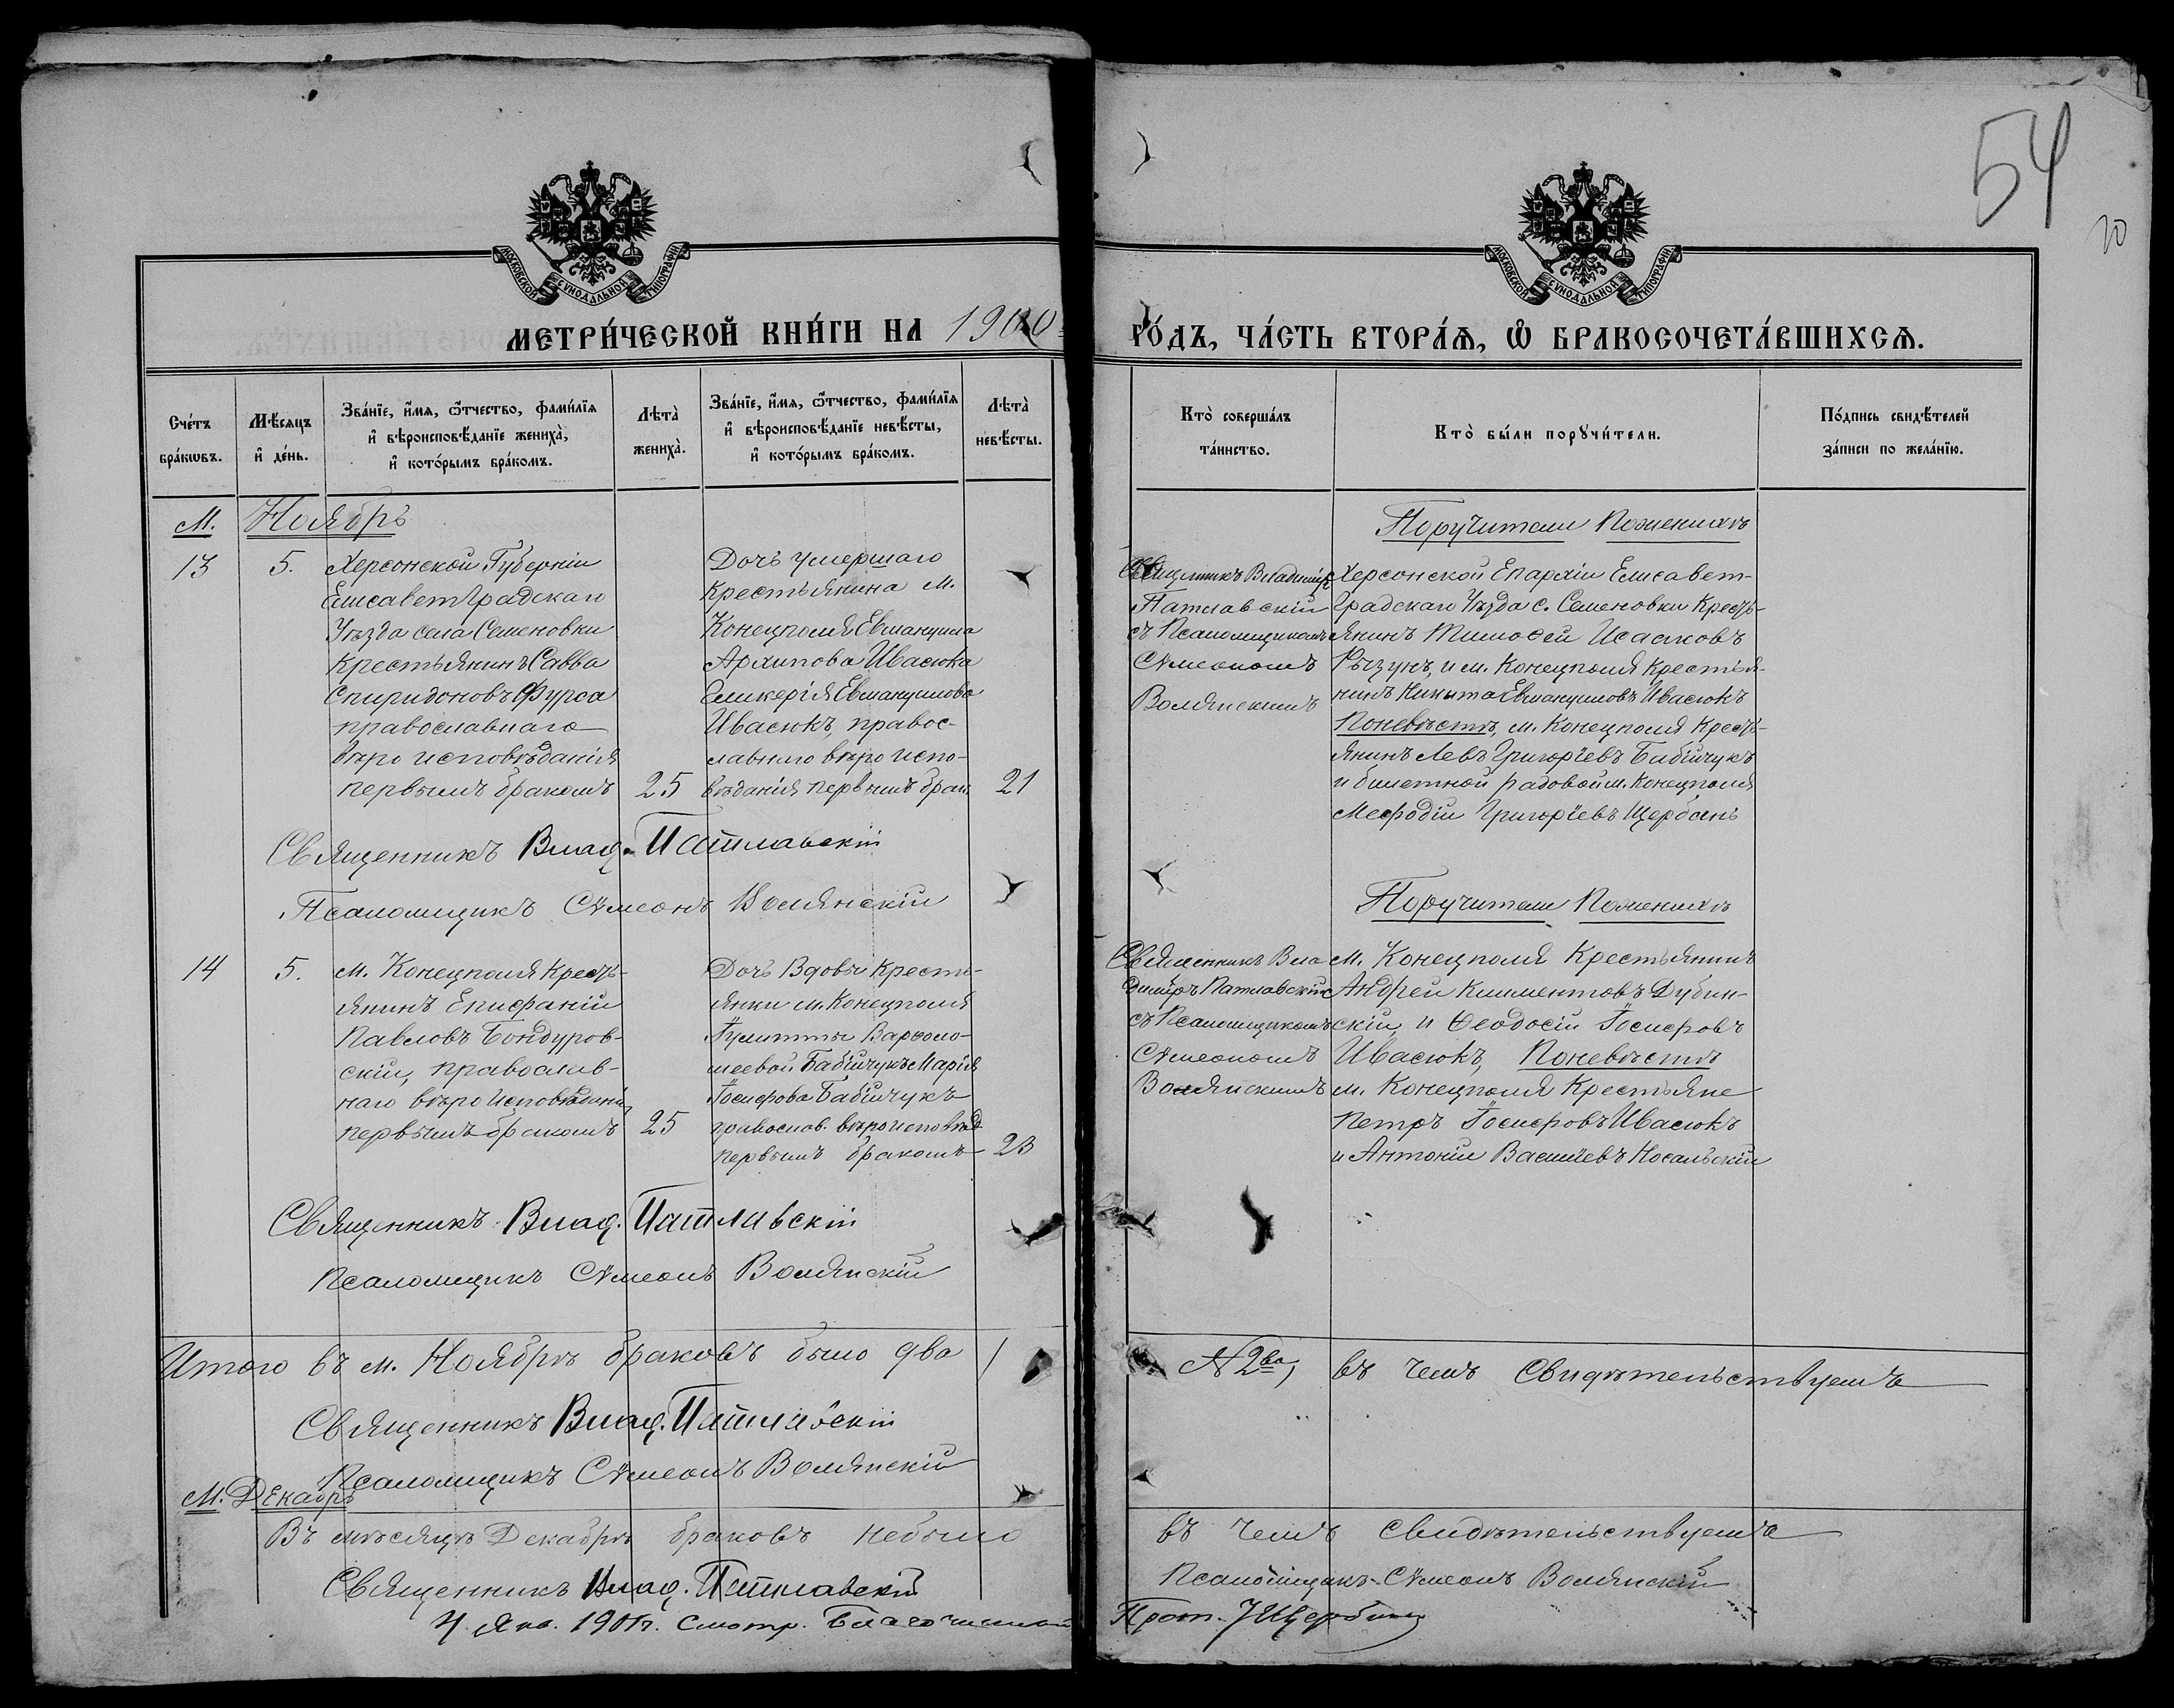 54
20
МОСКОВСКОЙ СУНОДАЛЬНОЙ ТИПОГРАФІИ
МОСКОВСКОЙ СУНОДАЛЬНОЙ ТИПОГРАФІИ
МЕТРИ́ЧЕСКОЙ КНИ́ГИ НА 1900
ГО́ДЪ, ЧА́СТЬ ВТОРА́Ѧ, Ѽ БРАКОСОЧЕТА́ВШИХСѦ.
Сче́тъ
бра́кѡвъ.
Мѣ́сѧцъ
и҆ де́нь.
Зва́нїе, и҆́мѧ, ѻ҆́тчество, фами́лїѧ
и҆ вѣроисповѣ́данїе жениха̀,
и҆ кото́рымъ бра́комъ.
Лѣта̀
жениха̀.
Зва́нїе, и҆́мѧ, ѻ҆́тчество, фами́лїѧ
и҆ вѣроисповѣ́данїе невѣ́сты,
и҆ кото́рымъ бра́комъ.
Лѣта̀
невѣ́сты.
Кто̀ соверша́лъ
та́инство.
Кто̀ бы́ли порꙋчи́тели.
По́дпись свидѣ́телей
за́писи по жела́нїю.
М. Ноябрь
13
5.
Херсонской Губерніи
Елисаветградскаго
Уѣзда села Семеновки
крестьянинъ Савва
Спиридоновъ Фурса
православнаго
вѣро исповѣданія
первымъ бракомъ
25
Дочь умершаго
крестьянина м.
Конецполя Евмануила
Архипова Ивасюка
Гликерія Евмануилова
Ивасюкъ, правос-
лавнаго вѣро испо-
вѣданія первымъ брак.
21
Священникъ Владиміръ
Патлавскій
съ Псаломщикомъ
Сѵмеономъ
Волянскимъ
Поручители По женихѣ
Херсонской Епархіи Елисавет-
градскаго Уѣзда с. Семеновки Кресть-
янинъ Тимофей Исааковъ
Рѣзунъ, и м. Конецполя Крестья-
нинъ Никита Евмануиловъ Ивасюкъ
По невѣстѣ, м. Конецполя Кресть-
янинъ Левъ Григорїевъ Бабійчукъ
и билетной рядовой м. Конецполя
Мефодій Григорїевъ Щербань
Священникъ Влад. Патлавскій
Псаломщикъ Сѵмеонъ Волянскій
14
5.
м. Конецполя Кресть-
янинъ Епифаній
Павловъ Бондуров-
скій, православ-
наго вѣро исповѣданія
первымъ бракомъ
25
Дочь Вдовы Кресть-
янки м. Конецполя
Іулитты Варѳоло-
меевой Бабійчукъ Марія
Іосифова Бабійчукъ
православ. вѣроисповѣд.
первымъ бракомъ
23
Священникъ Вла-
диміръ Патлавскій
съ Псаломщикомъ
Сѵмеономъ
Волянскимъ
Поручители По женихѣ
м. Конецполя Крестьянинъ
Андрей Климентовъ Дубин-
скій, и Ѳеодосій Іосифовъ
Ивасюкъ, По невѣстѣ
м. Конецполя Крестьяне
Петръ Іосифовъ Ивасюкъ
и Антоній Василїевъ Носальскій
Священникъ Влад. Патлавскій
Псаломщикъ Сѵмеонъ Волянскій
Итого въ м. Ноябрѣ браковъ было два
№ 2ва, въ чемъ Свидѣтельствуемъ
Священникъ Влад. Патлавскій
Псаломщикъ Сѵмеонъ Волянскій
М. Декабрь
Въ мѣсяцѣ Декабрѣ браковъ небыло
въ чемъ свидѣтельствуемъ
Священникъ Влад. Патлавскій
Псаломщикъ Сѵмеонъ Волянскій
4 Янв. 1901 г. Смотр. Благочинный
Прот. І Щербина